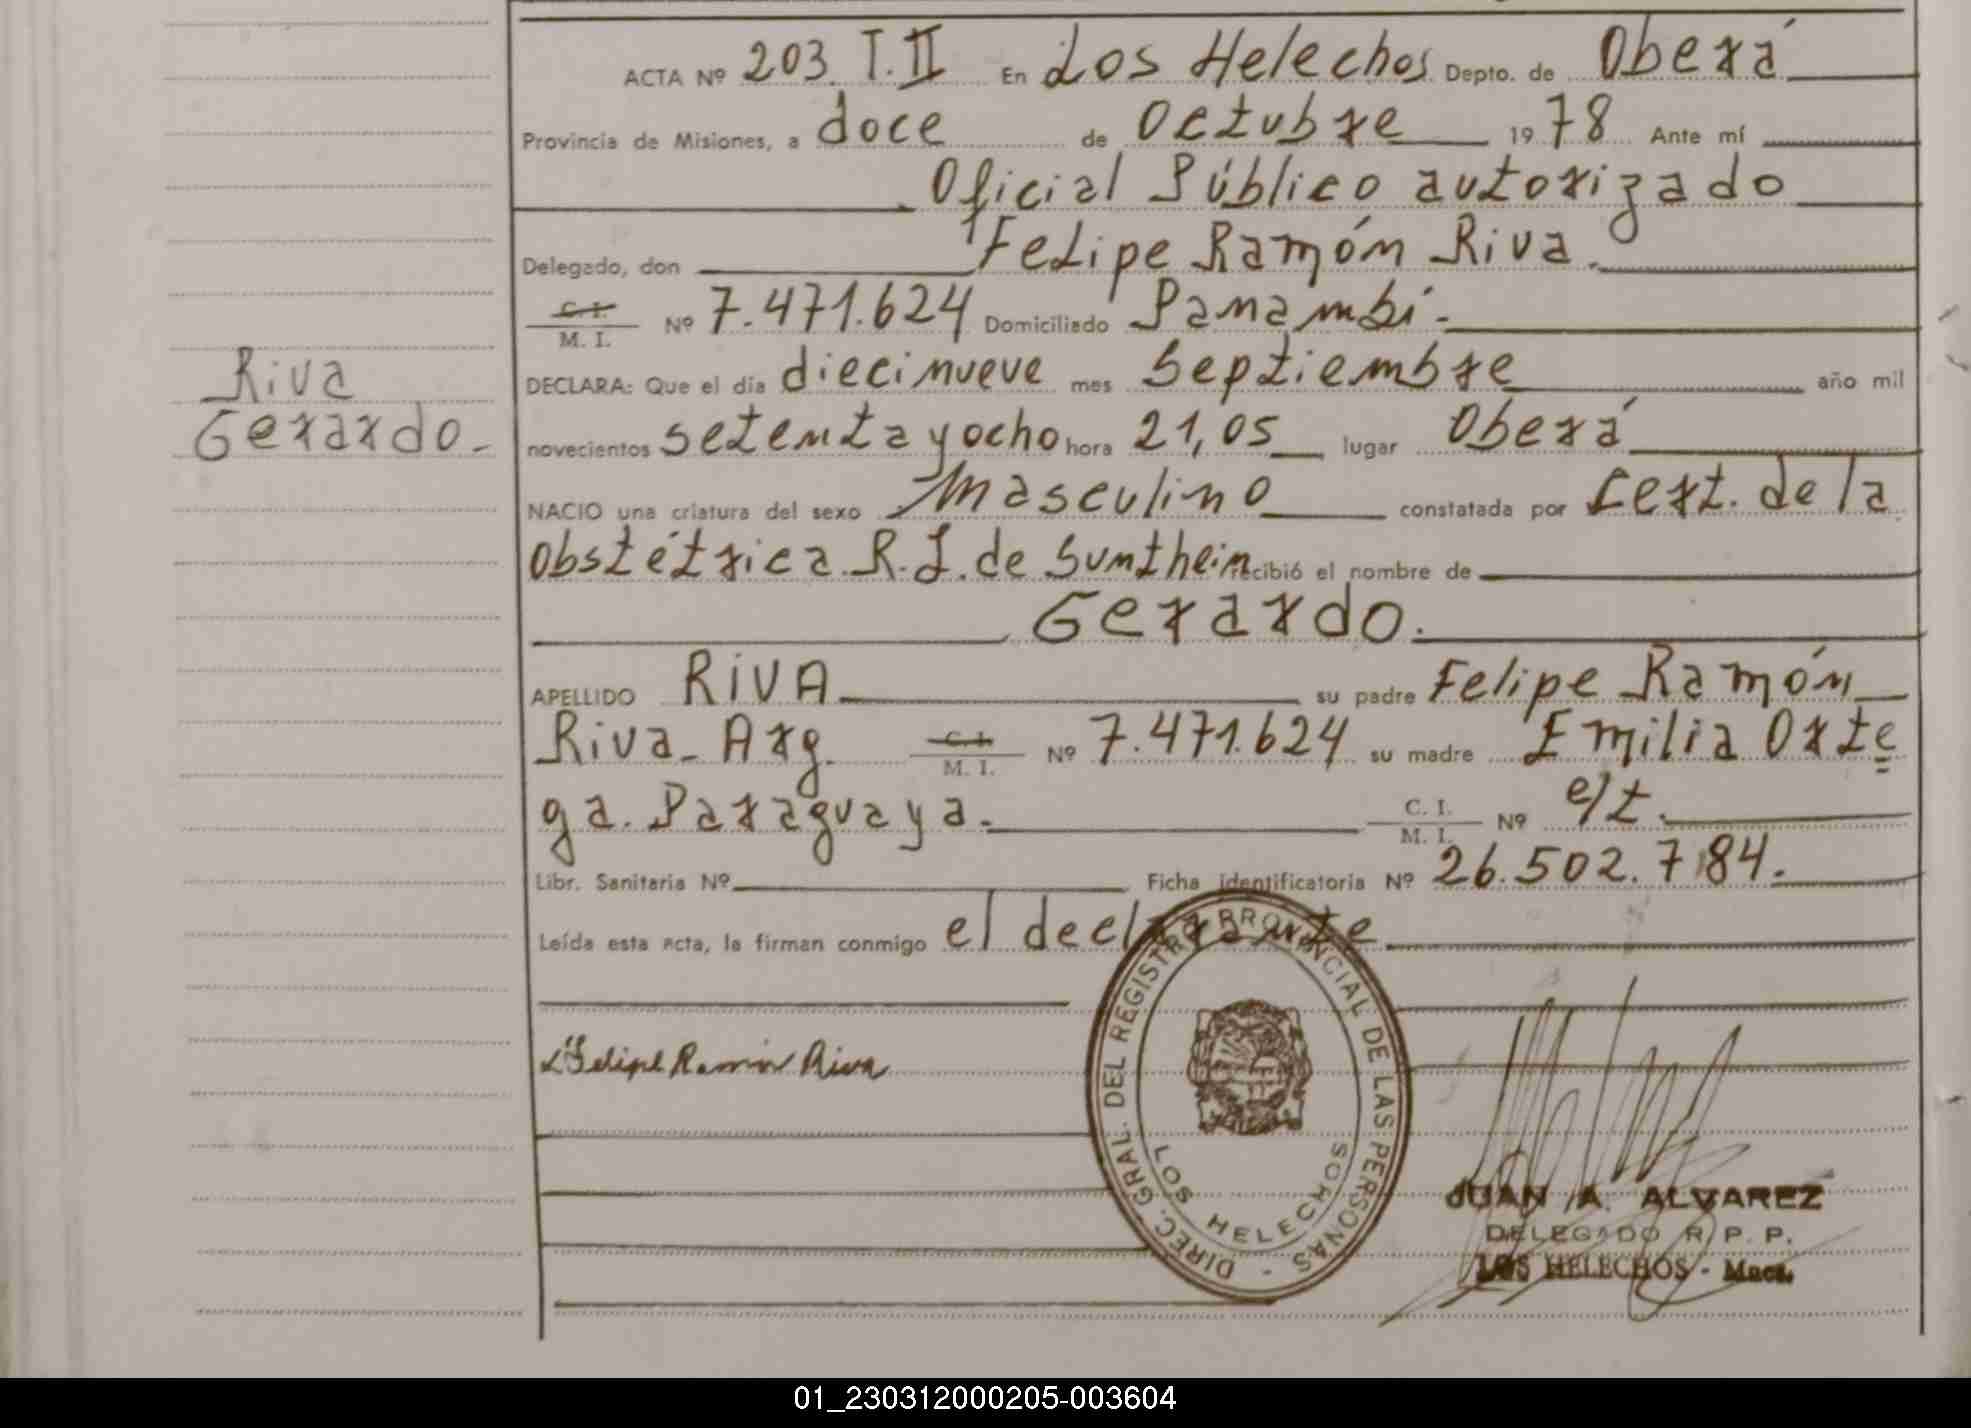 ACTA Nº 203 T.II En Los Helechos Depto. de Oberá
Provincia de Misiones, a doce de Octubre 1978 Ante mí
Oficial Público autorizado
Delegado, don Felipe Ramón Riva.
C. I.
M. I. Nº 7.471.624 Domiciliado Panambí.
DECLARA: Que el día diecinueve mes Septiembre año mil
novecientos setenta y ocho hora 21,05 lugar Oberá
NACIO una criatura del sexo Masculino constatada por Cert. de la
Obstétrica R. J. de Sunthein recibió el nombre de
Gerardo.
Riva
Gerardo.
APELLIDO RIVA su padre Felipe Ramón
Riva - Arg. C. I.
M. I. Nº 7.471.624 su madre Emilia Orte
ga. Paraguaya. C. I.
M. I. Nº e/t.
Libr. Sanitaria Nº Ficha identificatoria Nº 26.502.784.
Leída esta acta, la firman conmigo el declarante
Felipe Ramón Riva
DIREC. GRAL. DEL REGISTRO PROVINCIAL DE LAS PERSONAS -
LOS HELECHOS
JUAN A. ALVAREZ
DELEGADO R. P. P.
LOS HELECHOS - Mnes.
01_230312000205-003604